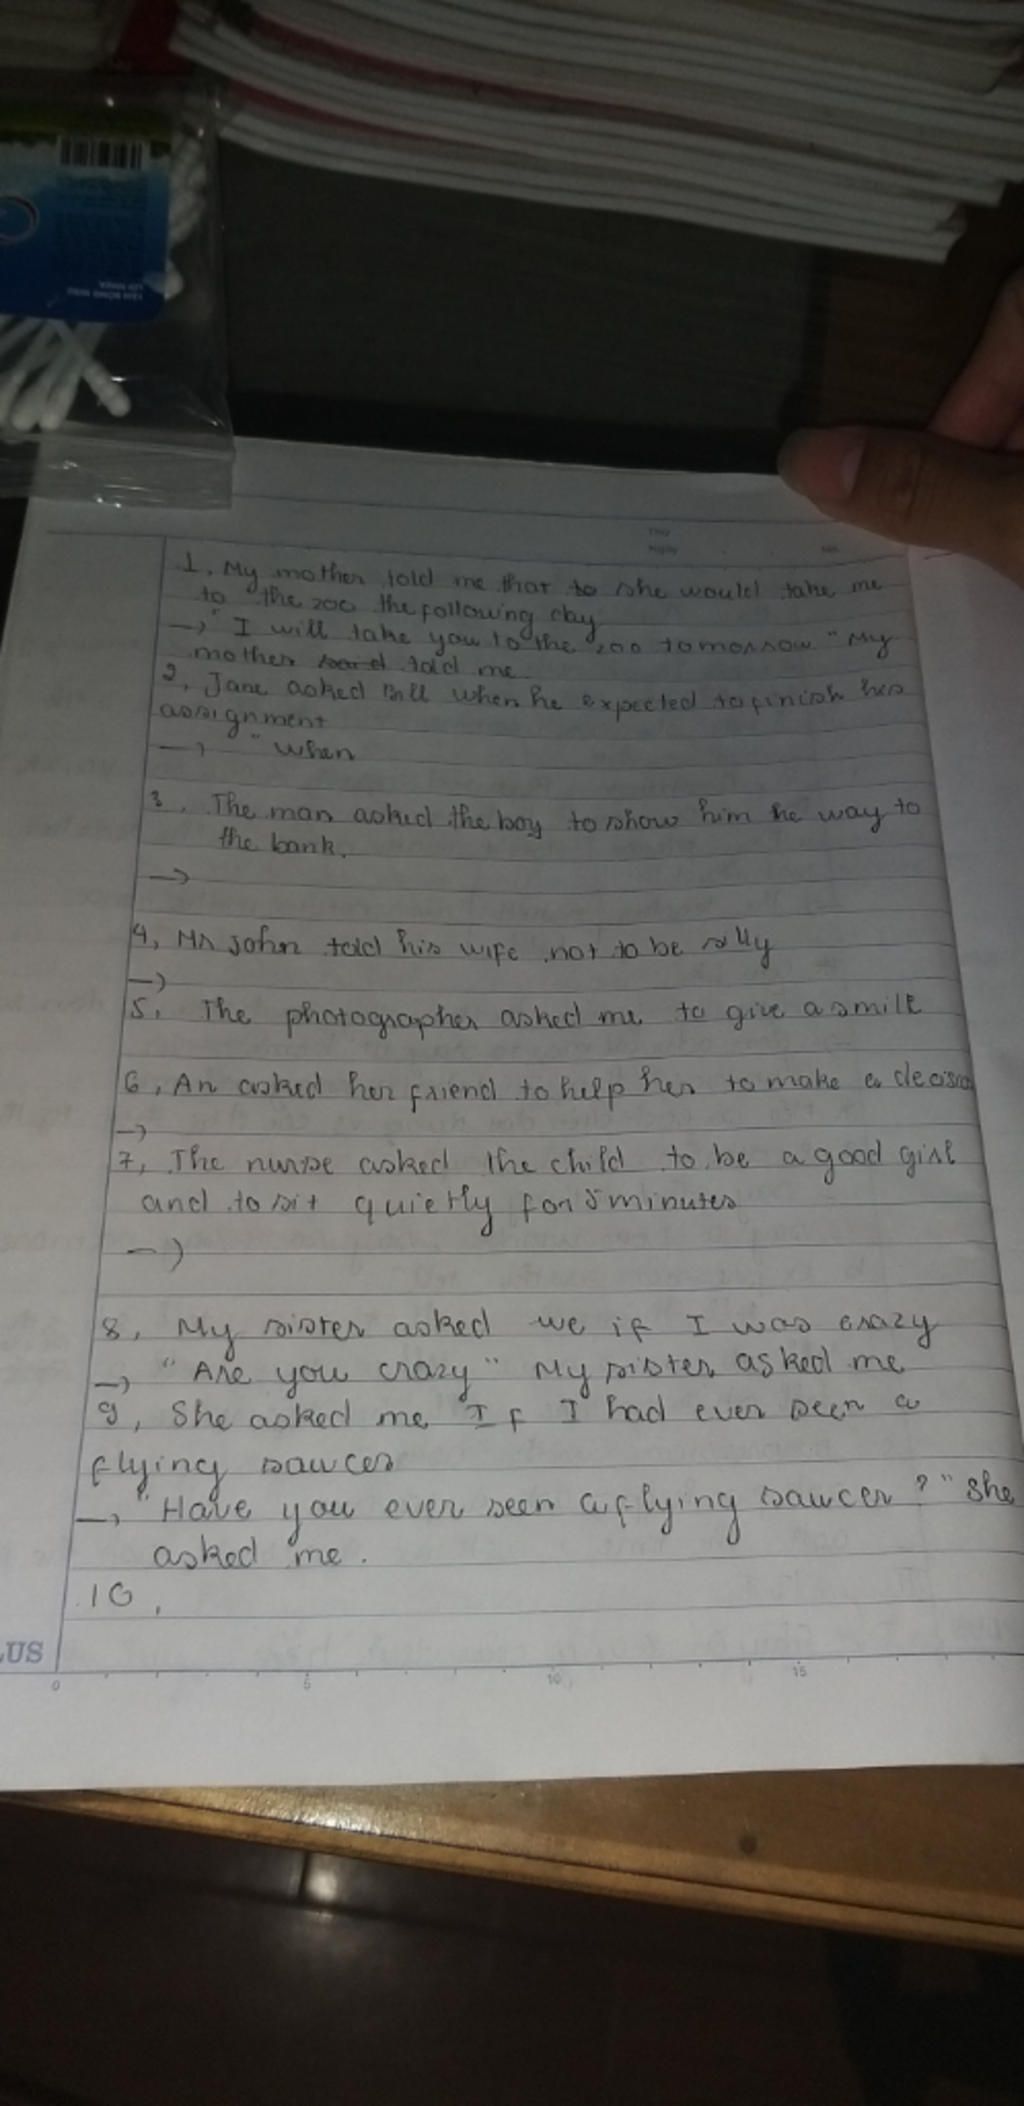 TĂM BÔNG NGOÁY
Thứ
Ngày
No.
1, My mother told me that to she would take me
to the zoo the following day
→ " I will take you to the zoo tomorrow " My
mother said told me
2, Jane asked Bill when he expected to finish his
assignment
→ " when
3, The man asked the boy to show him he way to
the bank.
→
4, Mr John told his wife not to be silly
→
5, The photographer asked me to give a smile
6, An asked her friend to help her to make a
→
7, The nurse asked the child to be a good girl
and to sit quietly for 5 minutes
→
8, My sister asked we if I was crazy
→ " Are you crazy " My sister asked me
9, She asked me If I had ever seen a
flying saucer
→ " Have you ever seen a flying saucer ? " she
asked me .
10,
LUS
0 5 10 15